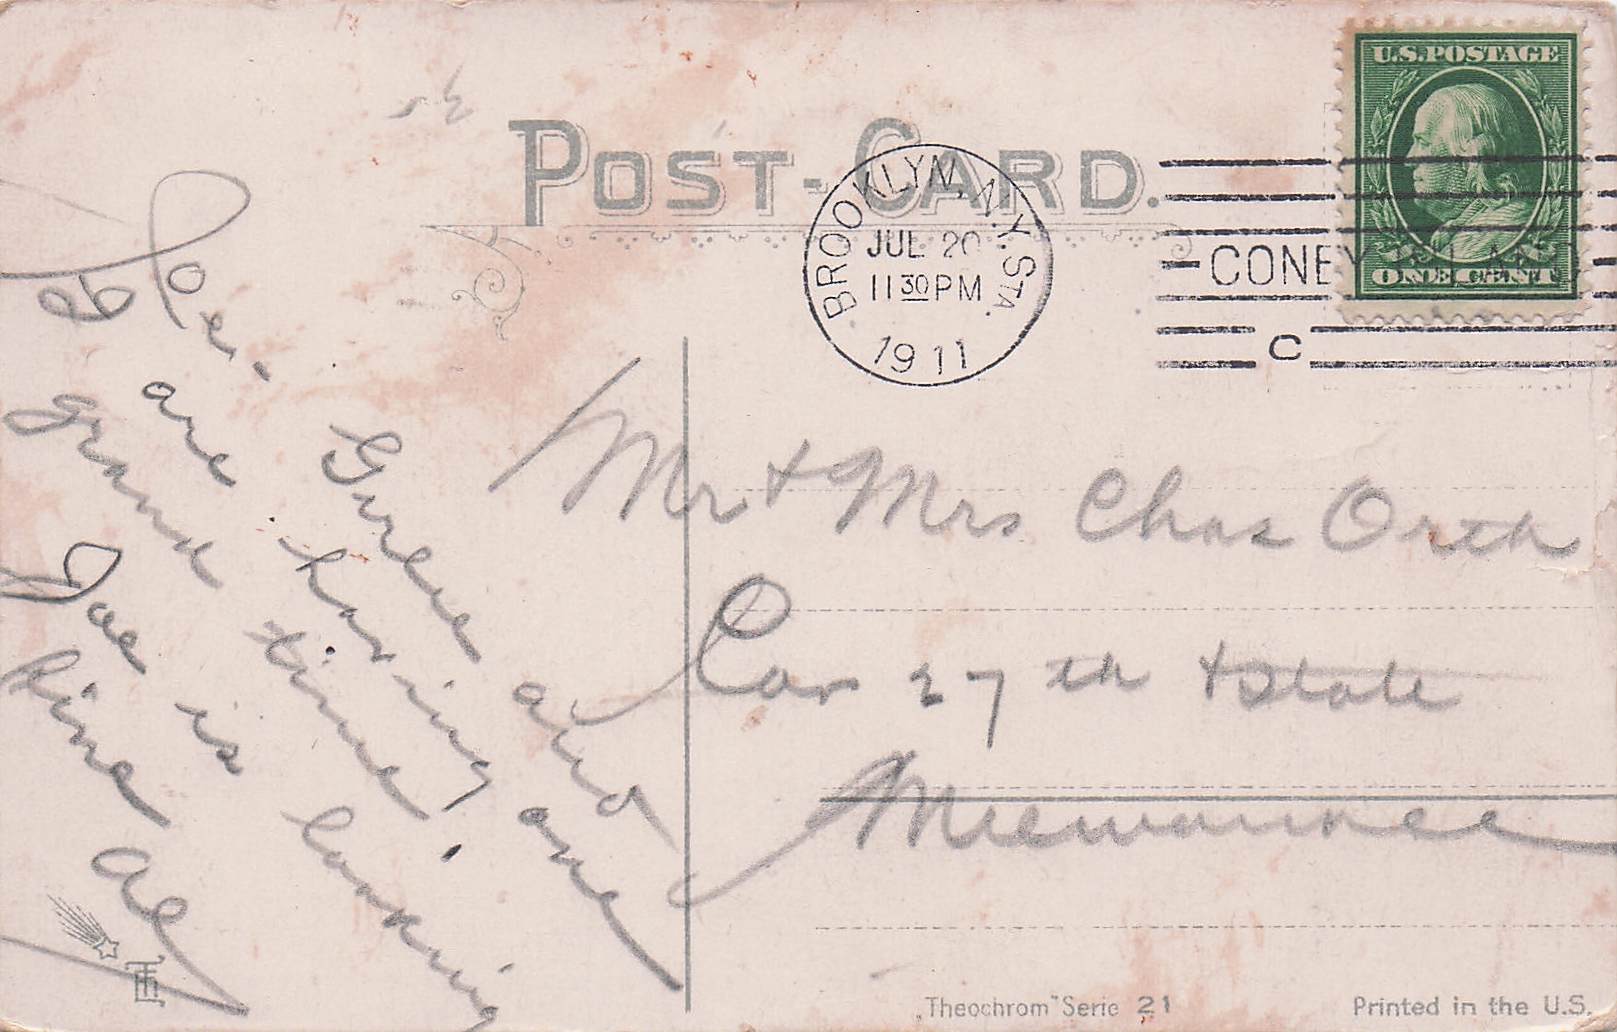 POST-CARD.
U.S. POSTAGE
ONE CENT
BROOKLYN, N.Y. STA.
JUL 20
11 30 PM
1911
CONEY ISLAND
C
Joe, Greee and one
are having
grand time!
Joe is looking
fine
Al
Mr + Mrs Chas Orth
Cor 27 th + State
Milwaukee
"Theochrom" Serie 21
Printed in the U.S.